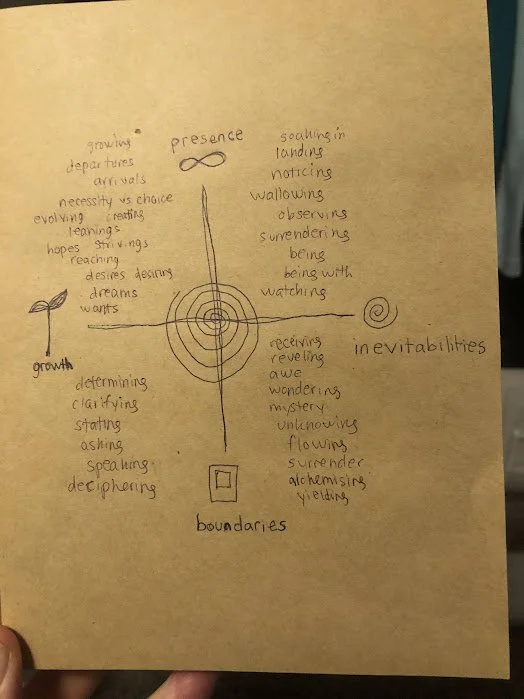 presence
growing
departures
arrivals
necessity vs choice
evolving creating
leanings
hopes strivings
reaching
desires desiring
dreams
wants
soaking in
landing
noticing
wallowing
observing
surrendering
being
being with
watching
growth
inevitabilities
determining
clarifying
stating
asking
speaking
deciphering
receiving
reveling
awe
wondering
mystery
unknowing
flowing
surrender
alchemising
yielding
boundaries